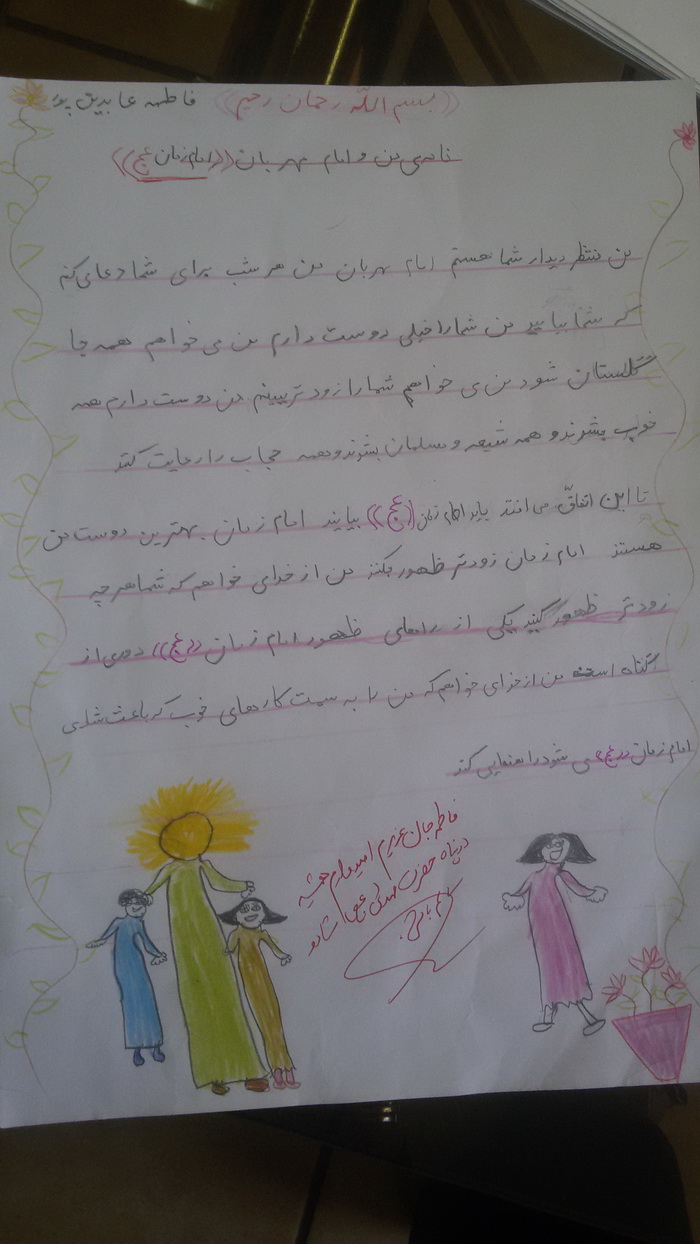 ((بسم اللّه رحمان رحیم)) فاطمه عابدین پور
نامه‌ی من و امام مهربان ((امام زمان عج))
من منتظر دیدار شما هستم امام مهربان من هر شب برای شما دعا می کنم
که شما بیایید من شما را خیلی دوست دارم من می خواهم همه جا
گلستان شود من می خواهم شما را زود تر ببینم من دوست دارم همه
خوب بشوند و همه شیعه و مسلمان بشوند و همه حجاب را رعایت کنند
تا این اتفاقّ می افتد باید امام زمان (عج)) بیایند امام زمان بهترین دوست من
هستند امام زمان زودتر ظهور بکنند من از خدا می خواهم که شما هر چه
زود تر ظهور کنید یکی از راه‌های ظهور امام زمان ((عج)) دوری از
گناه است من از خدا می خواهم که من را به سمت کارهای خوب که باعث شادی
امام زمان ((عج)) می شود راهنمایی کند
فاطمه جان عزیزم امیدوارم همیشه
در پناه حضرت مهدی عج شاد